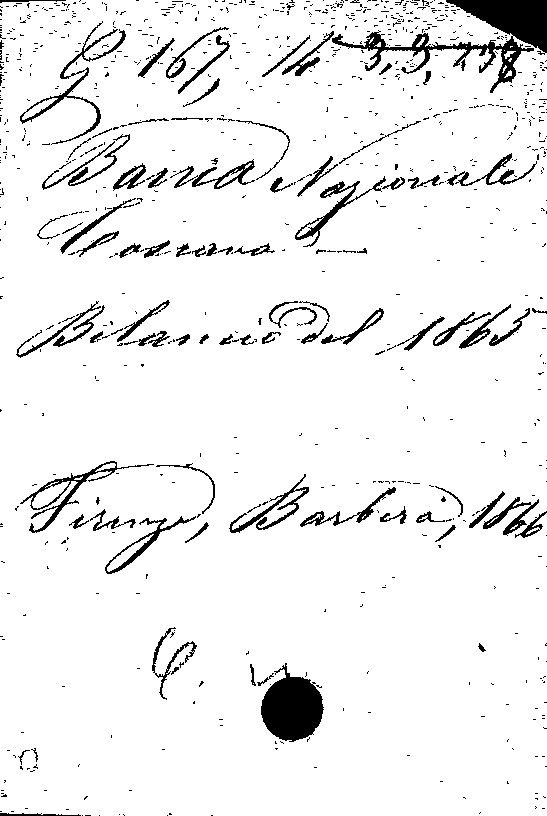 G. 167, 14 3.3.238
Banca Nazionale
Toscana —
Bilancio del 1865
Firenze, Barbèra, 1866
C.